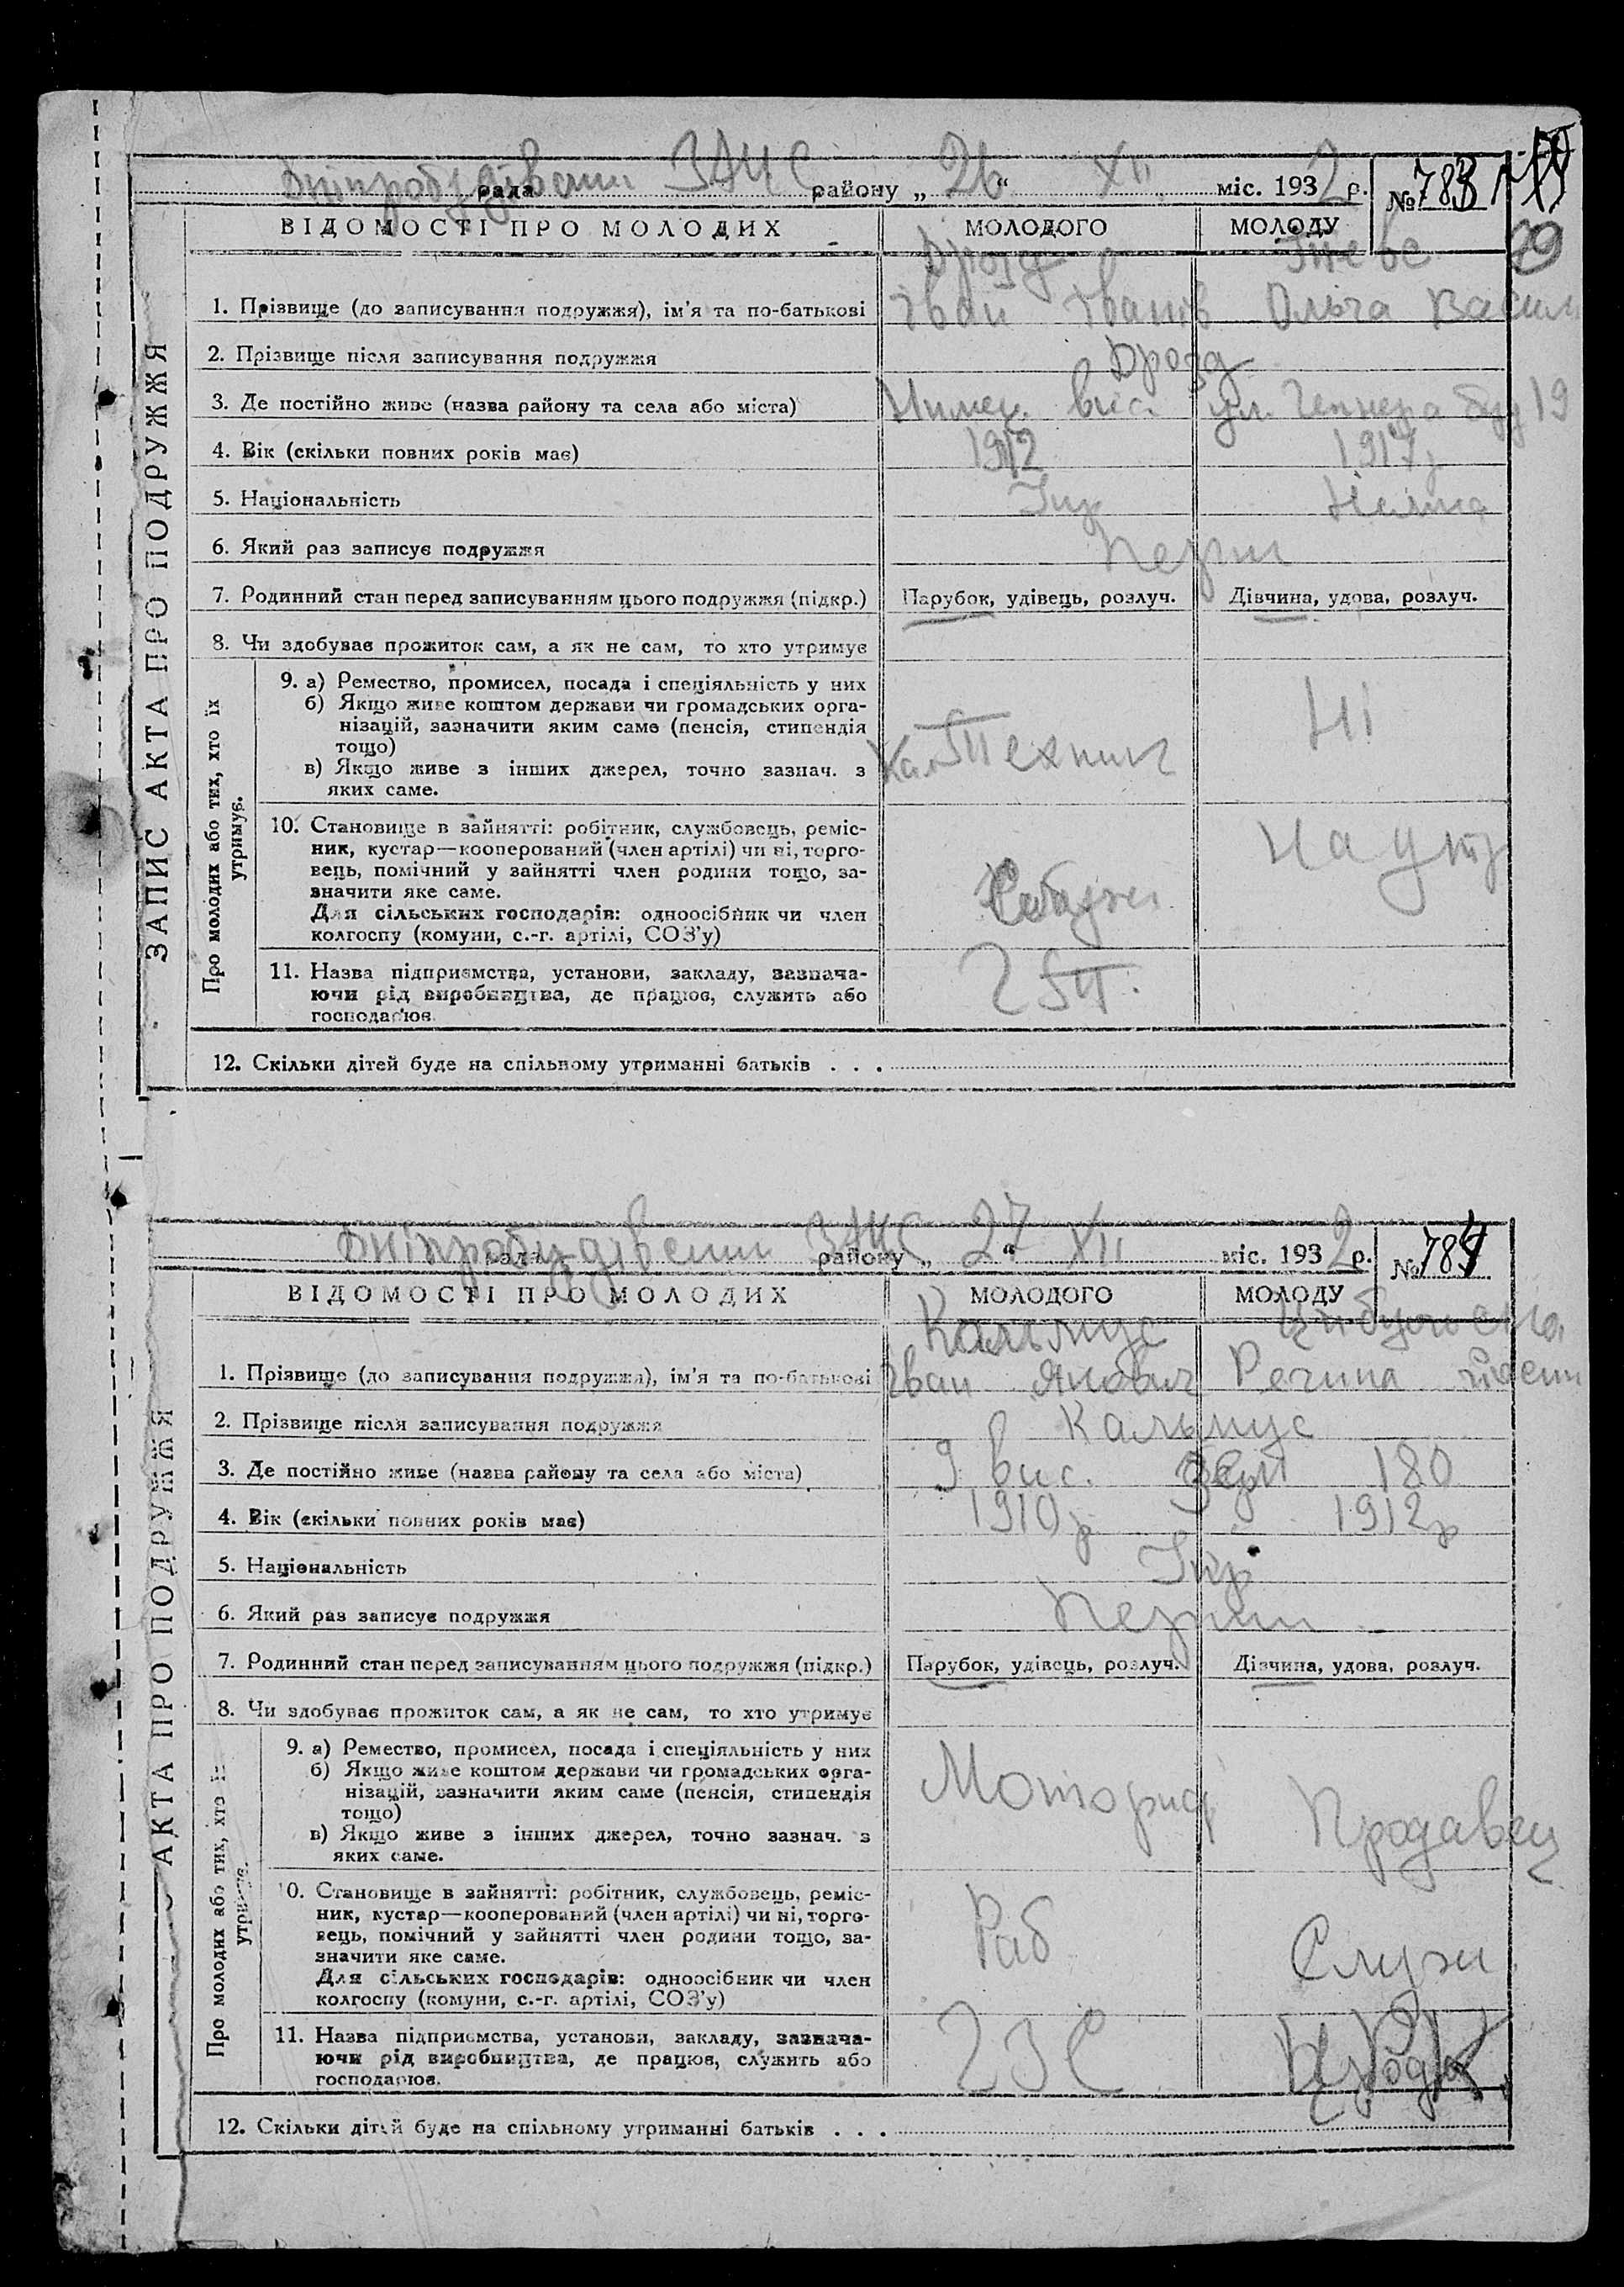 рада ЗАЧС району „ 26 “ XII міс. 1932 р. № 783
29
ВІДОМОСТІ ПРО МОЛОДИХ МОЛОДОГО МОЛОДУ
Дрозд
1. Прізвище (до записування подружжя), ім'я та по-батькові Іван Іванів Ольга Васил
2. Прізвище після записування подружжя Дрозд
3. Де постійно живе (назва району та села або міста) вис. ул. буд 19
4. Вік (скільки повних років має) 1912 1917р
5. Національність Укр Немка
6. Який раз записує подружжя Перши
7. Родинний стан перед записуванням цього подружжя (підкр.) Парубок, удівець, розлуч. Дівчина, удова, розлуч.
8. Чи здобуває прожиток сам, а як не сам, то хто утримує
ЗАПИС АКТА ПРО ПОДРУЖЖЯ
Про молодих або тих, хто їх утримує.
9. а) Ремество, промисел, посада і спеціяльність у них
б) Якщо живе коштом держави чи громадських орга-
нізацій, зазначити яким саме (пенсія, стипендія
тощо)
в) Якщо живе з інших джерел, точно зазнач. з
яких саме.
Техник Ні
10. Становище в зайнятті: робітник, службовець, реміс-
ник, кустар—кооперований (член артілі) чи ні, торго-
вець, помічний у зайнятті член родини тощо, за-
значити яке саме.
Для сільських господарів: одноосібник чи член
колгоспу (комуни, с.-г. артілі, СОЗ'у)
На утр
11. Назва підприємства, установи, закладу, зазнача-
ючи рід виробництва, де працює, служить або
господарює.
12. Скільки дітей буде на спільному утриманні батьків . . .
рада ЗАЧС району „ 27 “ XII міс. 1932 р. № 784
ВІДОМОСТІ ПРО МОЛОДИХ МОЛОДОГО МОЛОДУ
Кальмус
1. Прізвище (до записування подружжя), ім'я та по-батькові Іван Якович
2. Прізвище після записування подружжя Кальмус
3. Де постійно живе (назва району та села або міста) 9 вис. 180
4. Вік (скільки повних років має) 1910р 1912р
5. Національність Укр
6. Який раз записує подружжя Перши
7. Родинний стан перед записуванням цього подружжя (підкр.) Парубок, удівець, розлуч. Дівчина, удова, розлуч.
8. Чи здобуває прожиток сам, а як не сам, то хто утримує
АКТА ПРО ПОДРУЖЖЯ
Про молодих або тих, хто їх утримує.
9. а) Ремество, промисел, посада і спеціяльність у них
б) Якщо живе коштом держави чи громадських орга-
нізацій, зазначити яким саме (пенсія, стипендія
тощо)
в) Якщо живе з інших джерел, точно зазнач. з
яких саме.
Моторист Продавец
10. Становище в зайнятті: робітник, службовець, реміс-
ник, кустар—кооперований (член артілі) чи ні, торго-
вець, помічний у зайнятті член родини тощо, за-
значити яке саме.
Для сільських господарів: одноосібник чи член
колгоспу (комуни, с.-г. артілі, СОЗ'у)
Раб Служ
11. Назва підприємства, установи, закладу, зазнача-
ючи рід виробництва, де працює, служить або
господарює.
12. Скільки дітей буде на спільному утриманні батьків . . .